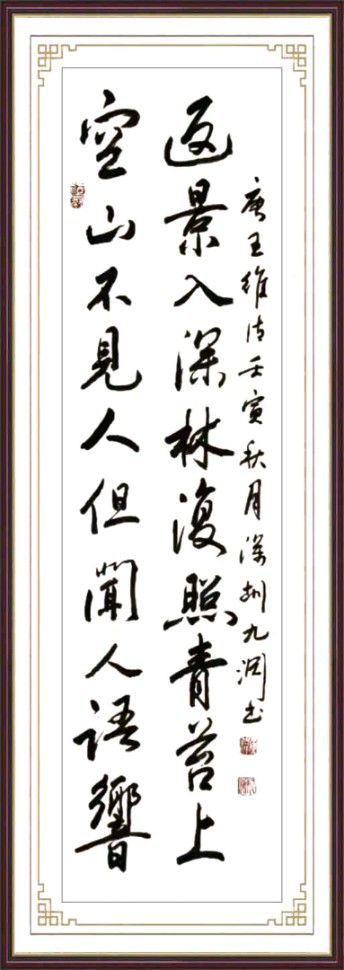 空山不見人但聞人語響
返景入深林復照青苔上
唐王維诗壬寅秋月深圳九润书